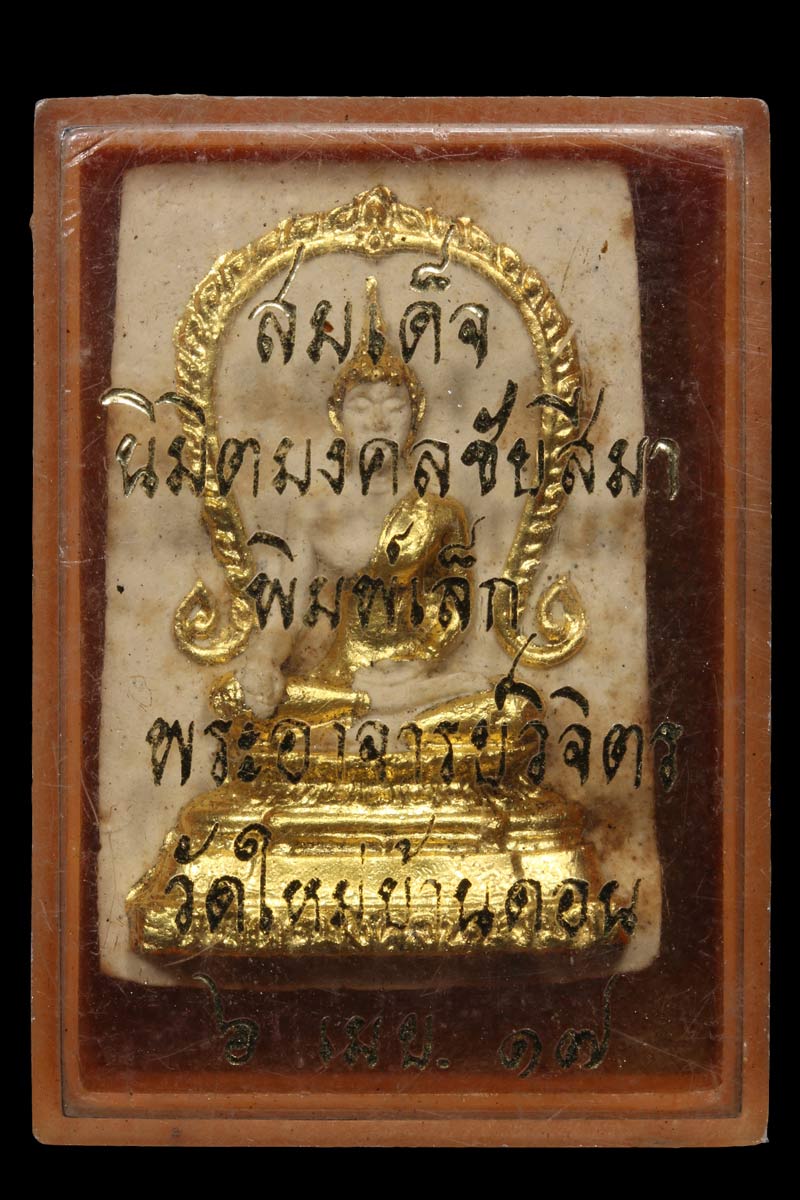 สมเด็จ
นิมิตมงคลชัยสีมา
พิมพ์เล็ก
พระอาจารย์วิจิตร
วัดใหม่บ้านดอน
๖ เมย. ๑๗